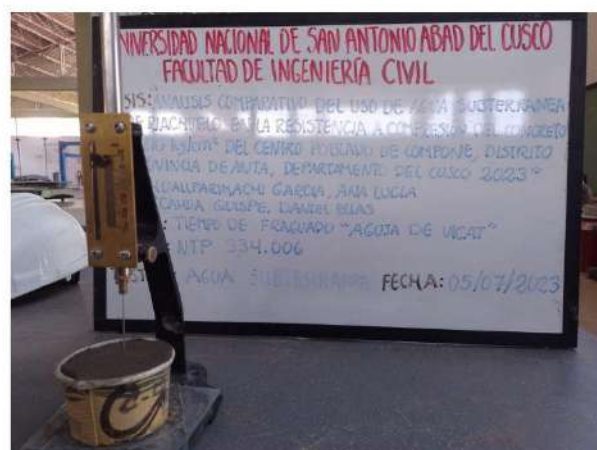 UNIVERSIDAD NACIONAL DE SAN ANTONIO ABAD DEL CUSCO
FACULTAD DE INGENIERÍA CIVIL
SIS: ANALISIS COMPARATIVO DEL USO DE AGUA SUBTERRANEA
DE RIACHUELO EN LA RESISTENCIA A COMPRESION DEL CONCRETO
KG/CM² DEL CENTRO POBLADO DE COMPONE, DISTRITO
VINCIA DE ANTA, DEPARTAMENTO DEL CUSCO 2023"
GARCIA, ANA LUCIA
QUISPE, DANIEL ELIAS
: TIEMPO DE FRAGUADO "AGUJA DE VICAT"
: NTP 334.006
AGUA SUBTERRANEA FECHA: 05/07/2023